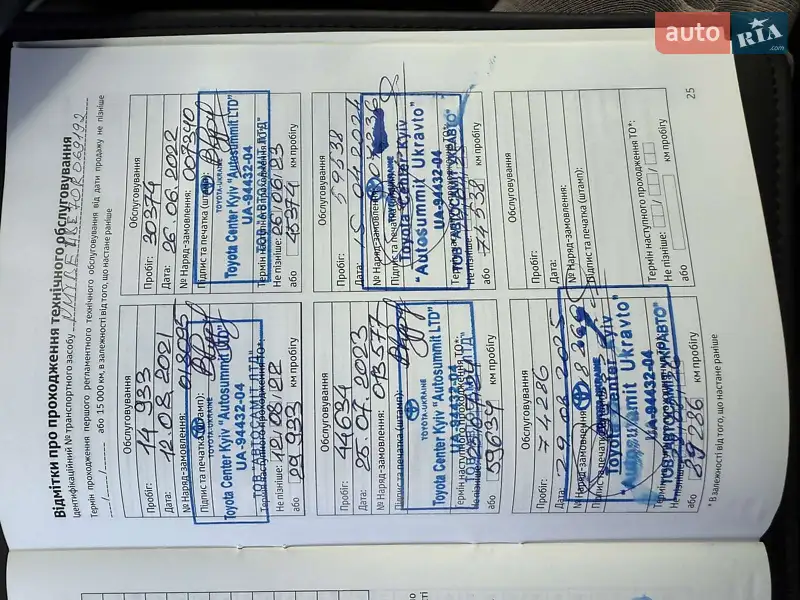 auto
RIA
.com
Відмітки про проходження технічного обслуговування
Ідентифікаційний № транспортного засобу
Термін проходження першого регламентного технічного обслуговування від дати продажу не пізніше
або 15 000 км, в залежності від того, що настане раніше
Обслуговування
Пробіг: 14 933
Дата: 12 08 2021
№ Наряд-замовлення: 018025
Підпис та печатка (штамп):
TOYOTA-UKRAINE
Toyota Center Kyiv "Autosummit LTD"
UA-94432-04
Не пізніше: 12/08/22
або 29 933 км пробігу
Обслуговування
Пробіг: 30374
Дата: 26.06.2022
№ Наряд-замовлення: 007340
Підпис та печатка (штамп):
TOYOTA-UKRAINE
Toyota Center Kyiv "Autosummit LTD"
UA-94432-04
Не пізніше: 26/06/23
або 45374 км пробігу
Обслуговування
Пробіг: 44634
Дата: 25.07.2023
№ Наряд-замовлення: 013577
Підпис та печатка (штамп):
TOYOTA-UKRAINE
Toyota Center Kyiv "Autosummit LTD"
UA-94432-04
або 59634 км пробігу
Обслуговування
Пробіг: 59538
Дата: 15 04 2024
№ Наряд-замовлення:
Підпис та печатка
Toyota Center Kyiv
"Autosummit Ukravto"
UA-94432-04
ТОВ "АВТОСАМІТ УКРАВТО"
Не пізніше:
або 74538 км пробігу
Обслуговування
Пробіг: 74286
Дата: 29 08 2025
№ Наряд-замовлення:
Підпис та печатка
Toyota Center Kyiv
"Autosummit Ukravto"
UA-94432-04
ТОВ "АВТОСАМІТ УКРАВТО"
Не пізніше:
або 89286 км пробігу
Обслуговування
Пробіг:
Дата:
№ Наряд-замовлення:
Підпис та печатка (штамп):
Термін наступного проходження ТО*:
Не пізніше:
або км пробігу
* В залежності від того, що настане раніше
25